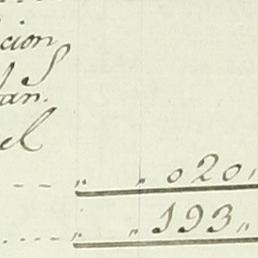 cion
lan.
el
-- „ „ 020 „
.... „ „ 193 „